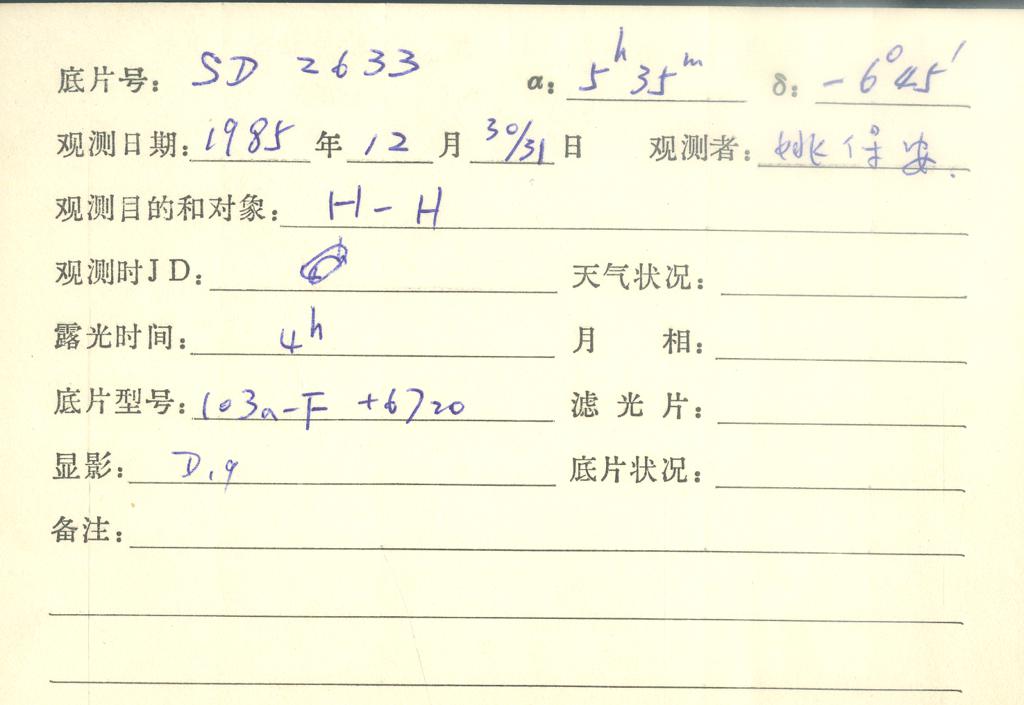 底片号: SD 2633 α: 5h 35m δ: -6°45′
观测日期: 1985 年 12 月 30/31 日 观测者: 姚保安.
观测目的和对象: H-H
观测时JD: 天气状况:
露光时间: 4h 月 相:
底片型号: 103a-F +6720 滤光片:
显影: D.19 底片状况:
备注: